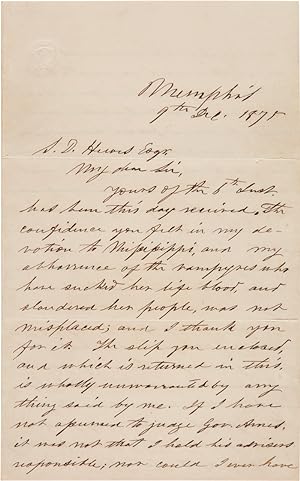 Memphis
9th Dec. 1875
S. D. Esqr
My dear Sir,
Yours of the 5th Inst.
has been this day received, The
confidence you felt in my de-
votion to Mississippi, and my
abhorrence of the vampyres who
have sucked her life blood, and
slandered her people, was not
misplaced; and I thank you
for it. The slip you enclosed,
and which is returned in this,
is wholly unwarranted by any
thing said by me. If I have
not to judge Gov. Ames,
it was not that I hold his advisers
responsible; nor could I ever have